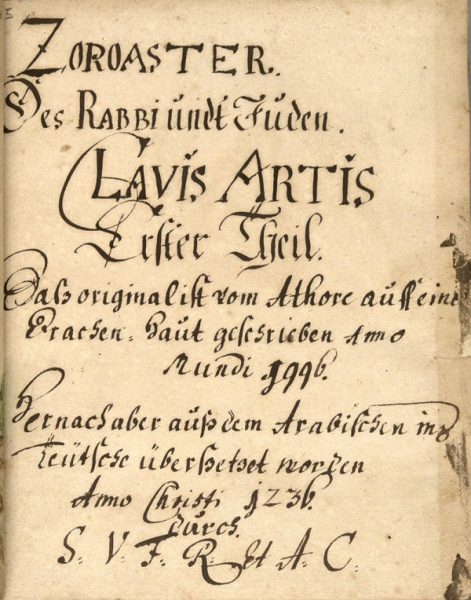 ZOROASTER.
Des RABBI undt Juden.
CLAVIS ARTIS
Erster Theil.
Daß original ist vom Athore auff eine
Drachen-Haut geschrieben Anno
Mundi 1996.
Hernach aber auß dem Arabischen ins
Teütsche übersetzet worden
Anno Christi 1236.
durch.
S. V. F. R. Et A. C.